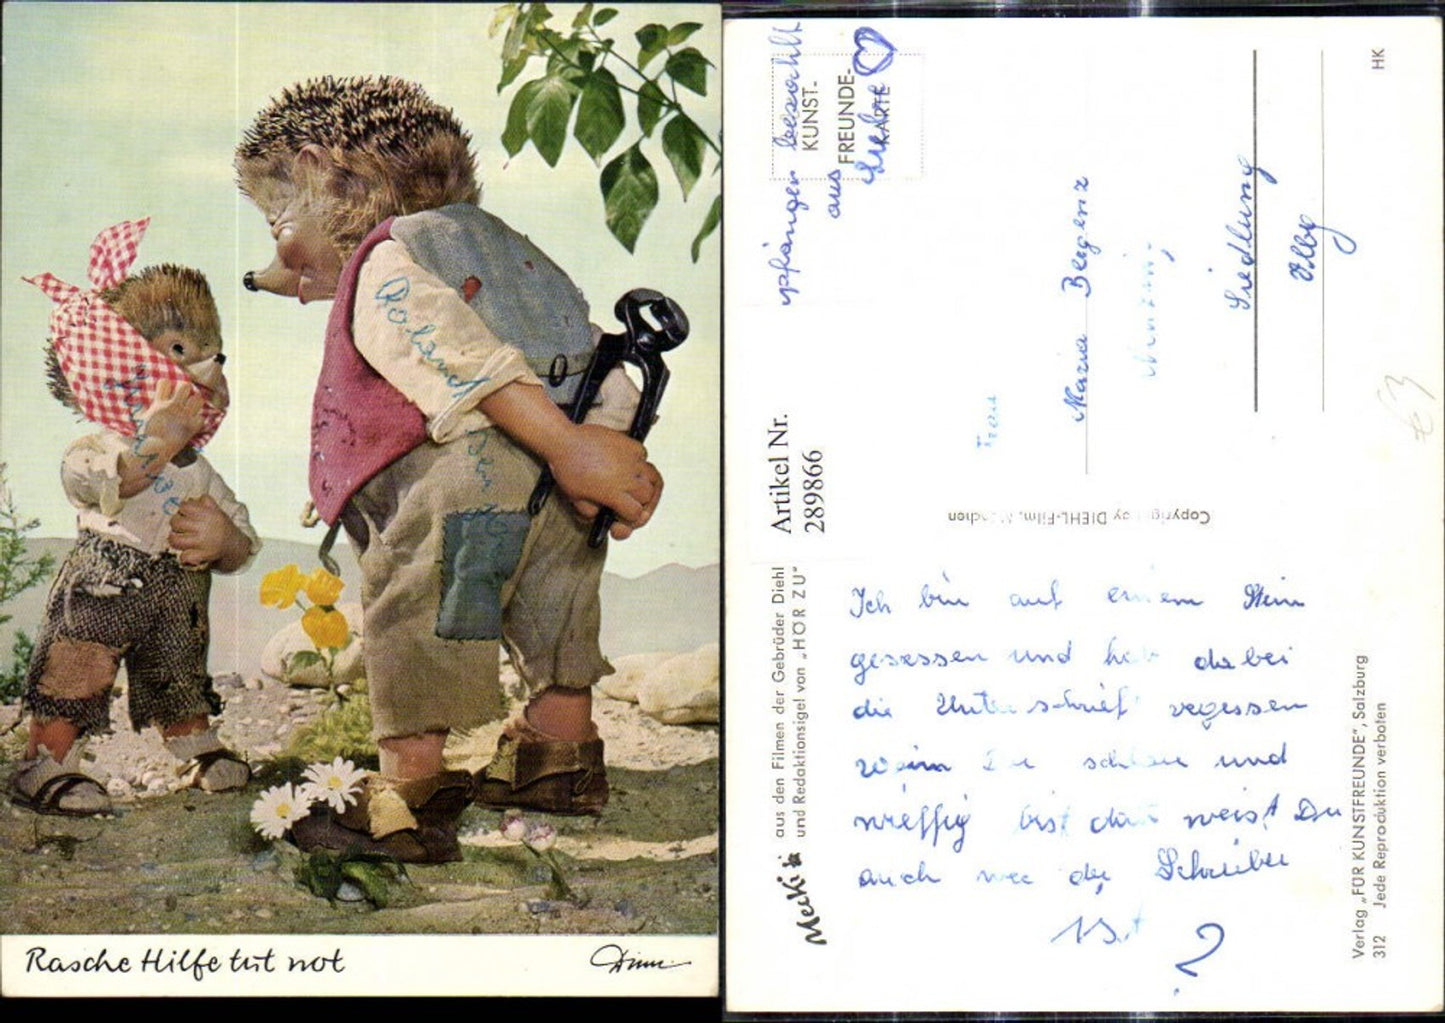 Rasche Hilfe tut not
Diehl
Roland
Empfänger bezahlt
aus
Liebe
KUNST-
FREUNDE-
KARTE
Artikel Nr.
289866
Mecki
aus den Filmen der Gebrüder Diehl
und Redaktionsigel von „HÖR ZU"
Frau
Maria
Siedlung
HK
€3
Copyright by DIEHL-Film, München
Ich bin auf einem Stein
gesessen und hab dabei
die Unterschrift vegessen
wenn Du schlau und
pfiffig bist dann weist Du
auch wer der Schreiber
ist
?
Verlag „FÜR KUNSTFREUNDE", Salzburg
312 Jede Reproduktion verboten